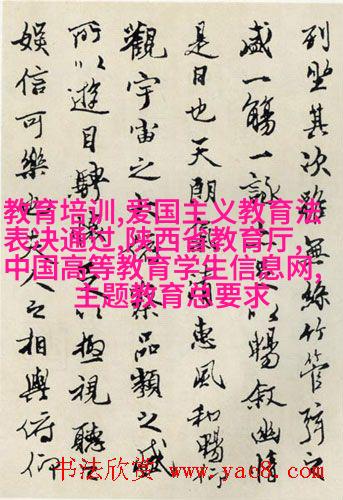 列坐其次雖無絲竹管弦之
盛一觴一詠亦足以暢敘幽情
是日也天朗氣清惠風和暢仰
觀宇宙之大俯察品類之盛
所以遊目騁懷足以極視聽之
娛信可樂也夫人之相與俯仰
教育培训,爱国主义教育法
表决通过,陕西省教育厅,
中国高等教育学生信息网,
主题教育总要求
书法欣赏 www.yac8.com